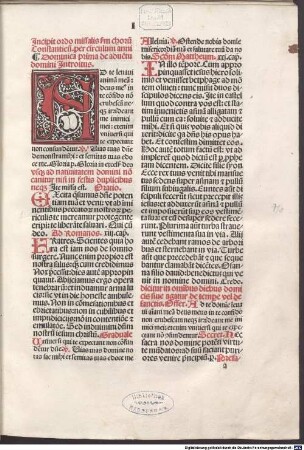 Incipit ordo missalis secundum chorum
Constantiensem. per circulum anni
Dominica prima de adventu
domini Introitus.
D te levavi
animam meã
deus me⁹ in
te cõfido nõ
erubescã
neqz irrideant
me inimici
mei: etenim
universi qui
te expectant
non confundentur. Vias tuas dñe
demonstra mihi: et semitas tuas edo
ce me. Gloria
usqz ad nativitatem domini nõ
canitur nisi in festis duplicibus
Ite missa est. Oratio.
Excita quesumus dñe potenti
am tuã et veni: vt ab immi
nentibus peccatorum nostrorum pe
riculis te mereamur protegente
eripi te liberante salvari. Qui
Ad Romanos. xiii. cap.
Fratres. Scientes quia ho
ra est iam nos de somno
surgere. Nunc enim propior est
nostra salus qz cum credidimus
Nox precessit: dies autẽ appropin
quavit. Abiiciamus ergo opera
tenebrarum: et induamur arma lu
cis: sicut in die honeste ambule
mus. Non in cõmessationibus et
ebrietatibus: non in cubilibus et
impudiciciis: non in contentiõe et
emulatiõe. Sed induimini dñm
nostrũ iesum christũ. Graduale
Universi qui te expectant non cõfun
dentur dñe. Vias tuas domine no
tas fac mihi: et semitas tuas edoce me
Alleluia. Ostende nobis domine
misericordiã tuã: et salutare tuũ da no
bis. Scdm Mattheum. xxi. cap.
In illo tẽpore. Cum appro
pinquasset iesus hierosoli
mis: et venisset betphage ad mõ
tem oliveti: tunc misit duos di
scipulos dicens eis. Ite in castel
lum quod contra vos est: et sta
tim invenietis asinã alligatam et
pullũ cum ea: solvite et adducite
mihi. Et si quis vobis aliquid di
xerit: dicite qz dñs his opus habet
Et confestim dimittet eos.
Hoc autẽ totum factũ est: vt ad
impleret quod dictũ est per prophe
tam dicentem. Dicite filie syon
ecce rex tuus venit tibi mansue
tus sedens super asinam et pullũ
filium subiugalis. Euntes autẽ di
scipuli fecerũt sicut precepit illis
iesus: et adduxerũt asinã et pullũ
et imposuerũt sup eos vestimen
ta sua: et eũ desuper sedere fece
runt. Plurima autẽ turba strave
runt vestimenta sua in via. Alii
autẽ cedebant ramos de arbori
bus: et sternebant in via. Turbe
autẽ que precedebãt et que seque
bantur clamabãt dicẽtes. Osan
na filio david: benedictus qui ve
nit in nomine domini. Credo
dicitur in omnibus diebus domi
cis sive agatur de tempore vel de
sanctis. Offert. Ad te domine leva
vi animã meã: deus meus in te cõfido
non erubescam: neqz irrideant me ini
mici mei: etenim universi qui te expe
ctant nõ cõfundentur. Secreta. Hec
sacra nos domine potẽti virtu
te mũdatos ad suũ faciant puri
ores venire prĩcipiũ. per. Prefa-
a